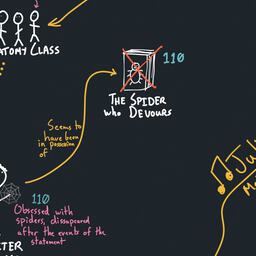 ATOMY CLASS
110
THE SPIDER
WHO DEVOURS
Seems to
have been
in possession
of
110
Obsessed with
spiders, dissapeared
after the events of the
statement
TER